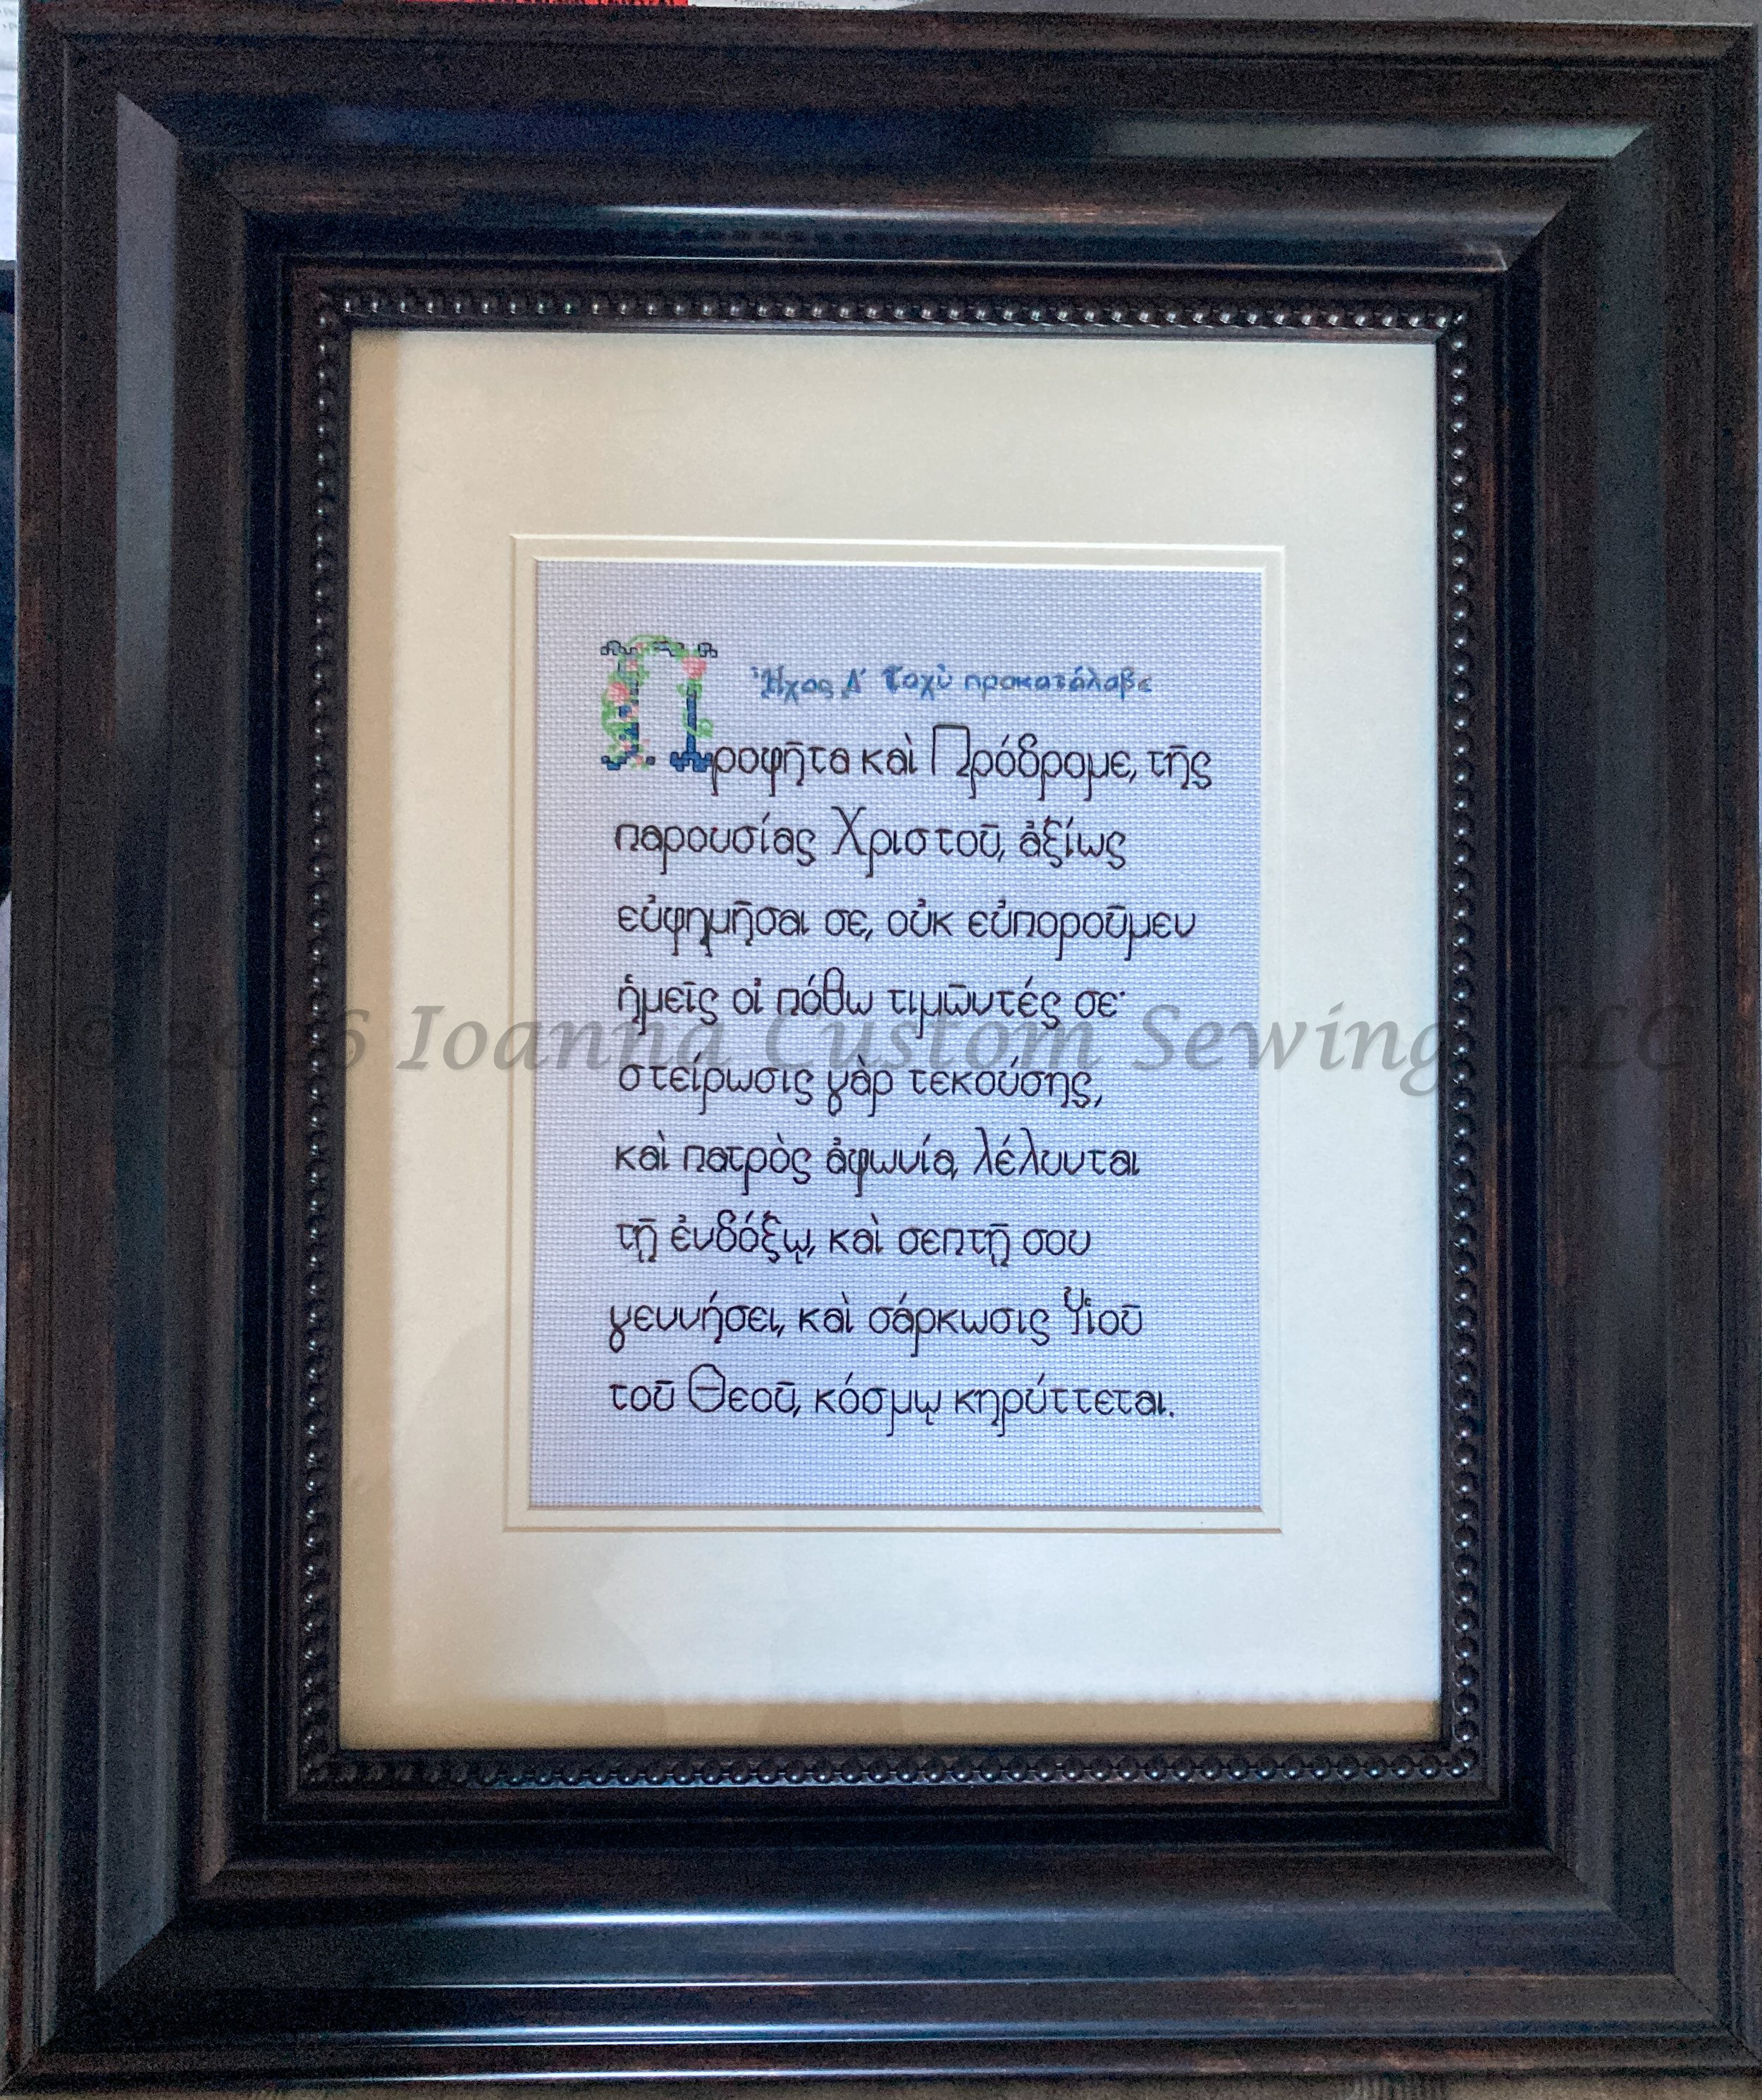 Ἦχος Δ' Ταχὺ προκατάλαβε
Προφῆτα καὶ Πρόδρομε, τῆς
παρουσίας Χριστοῦ, ἀξίως
εὐφημῆσαι σε, οὐκ εὐποροῦμεν
ἡμεῖς οἱ πόθω τιμῶντές σε·
στείρωσις γὰρ τεκούσης,
καὶ πατρὸς ἀφωνία, λέλυνται
τῇ ἐνδόξῳ, καὶ σεπτῇ σου
γεννήσει, καὶ σάρκωσις Υἱοῦ
τοῦ Θεοῦ, κόσμῳ κηρύττεται.
© 2026 Ioanna Custom Sewing, LLC